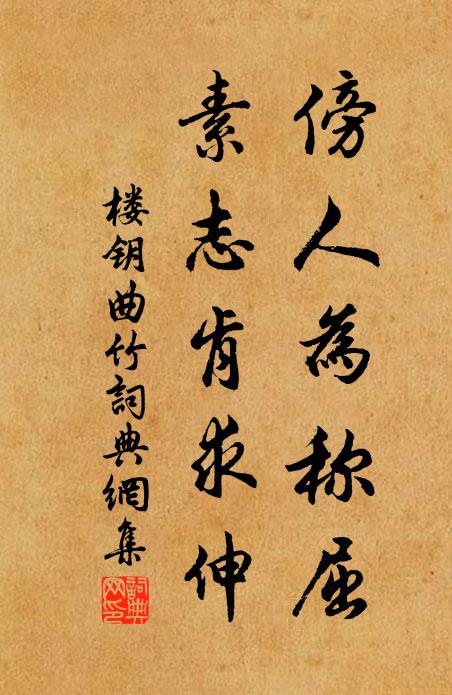 傍人為称屈
素志肯求伸
楼钥曲竹詞典網集
詞典網印